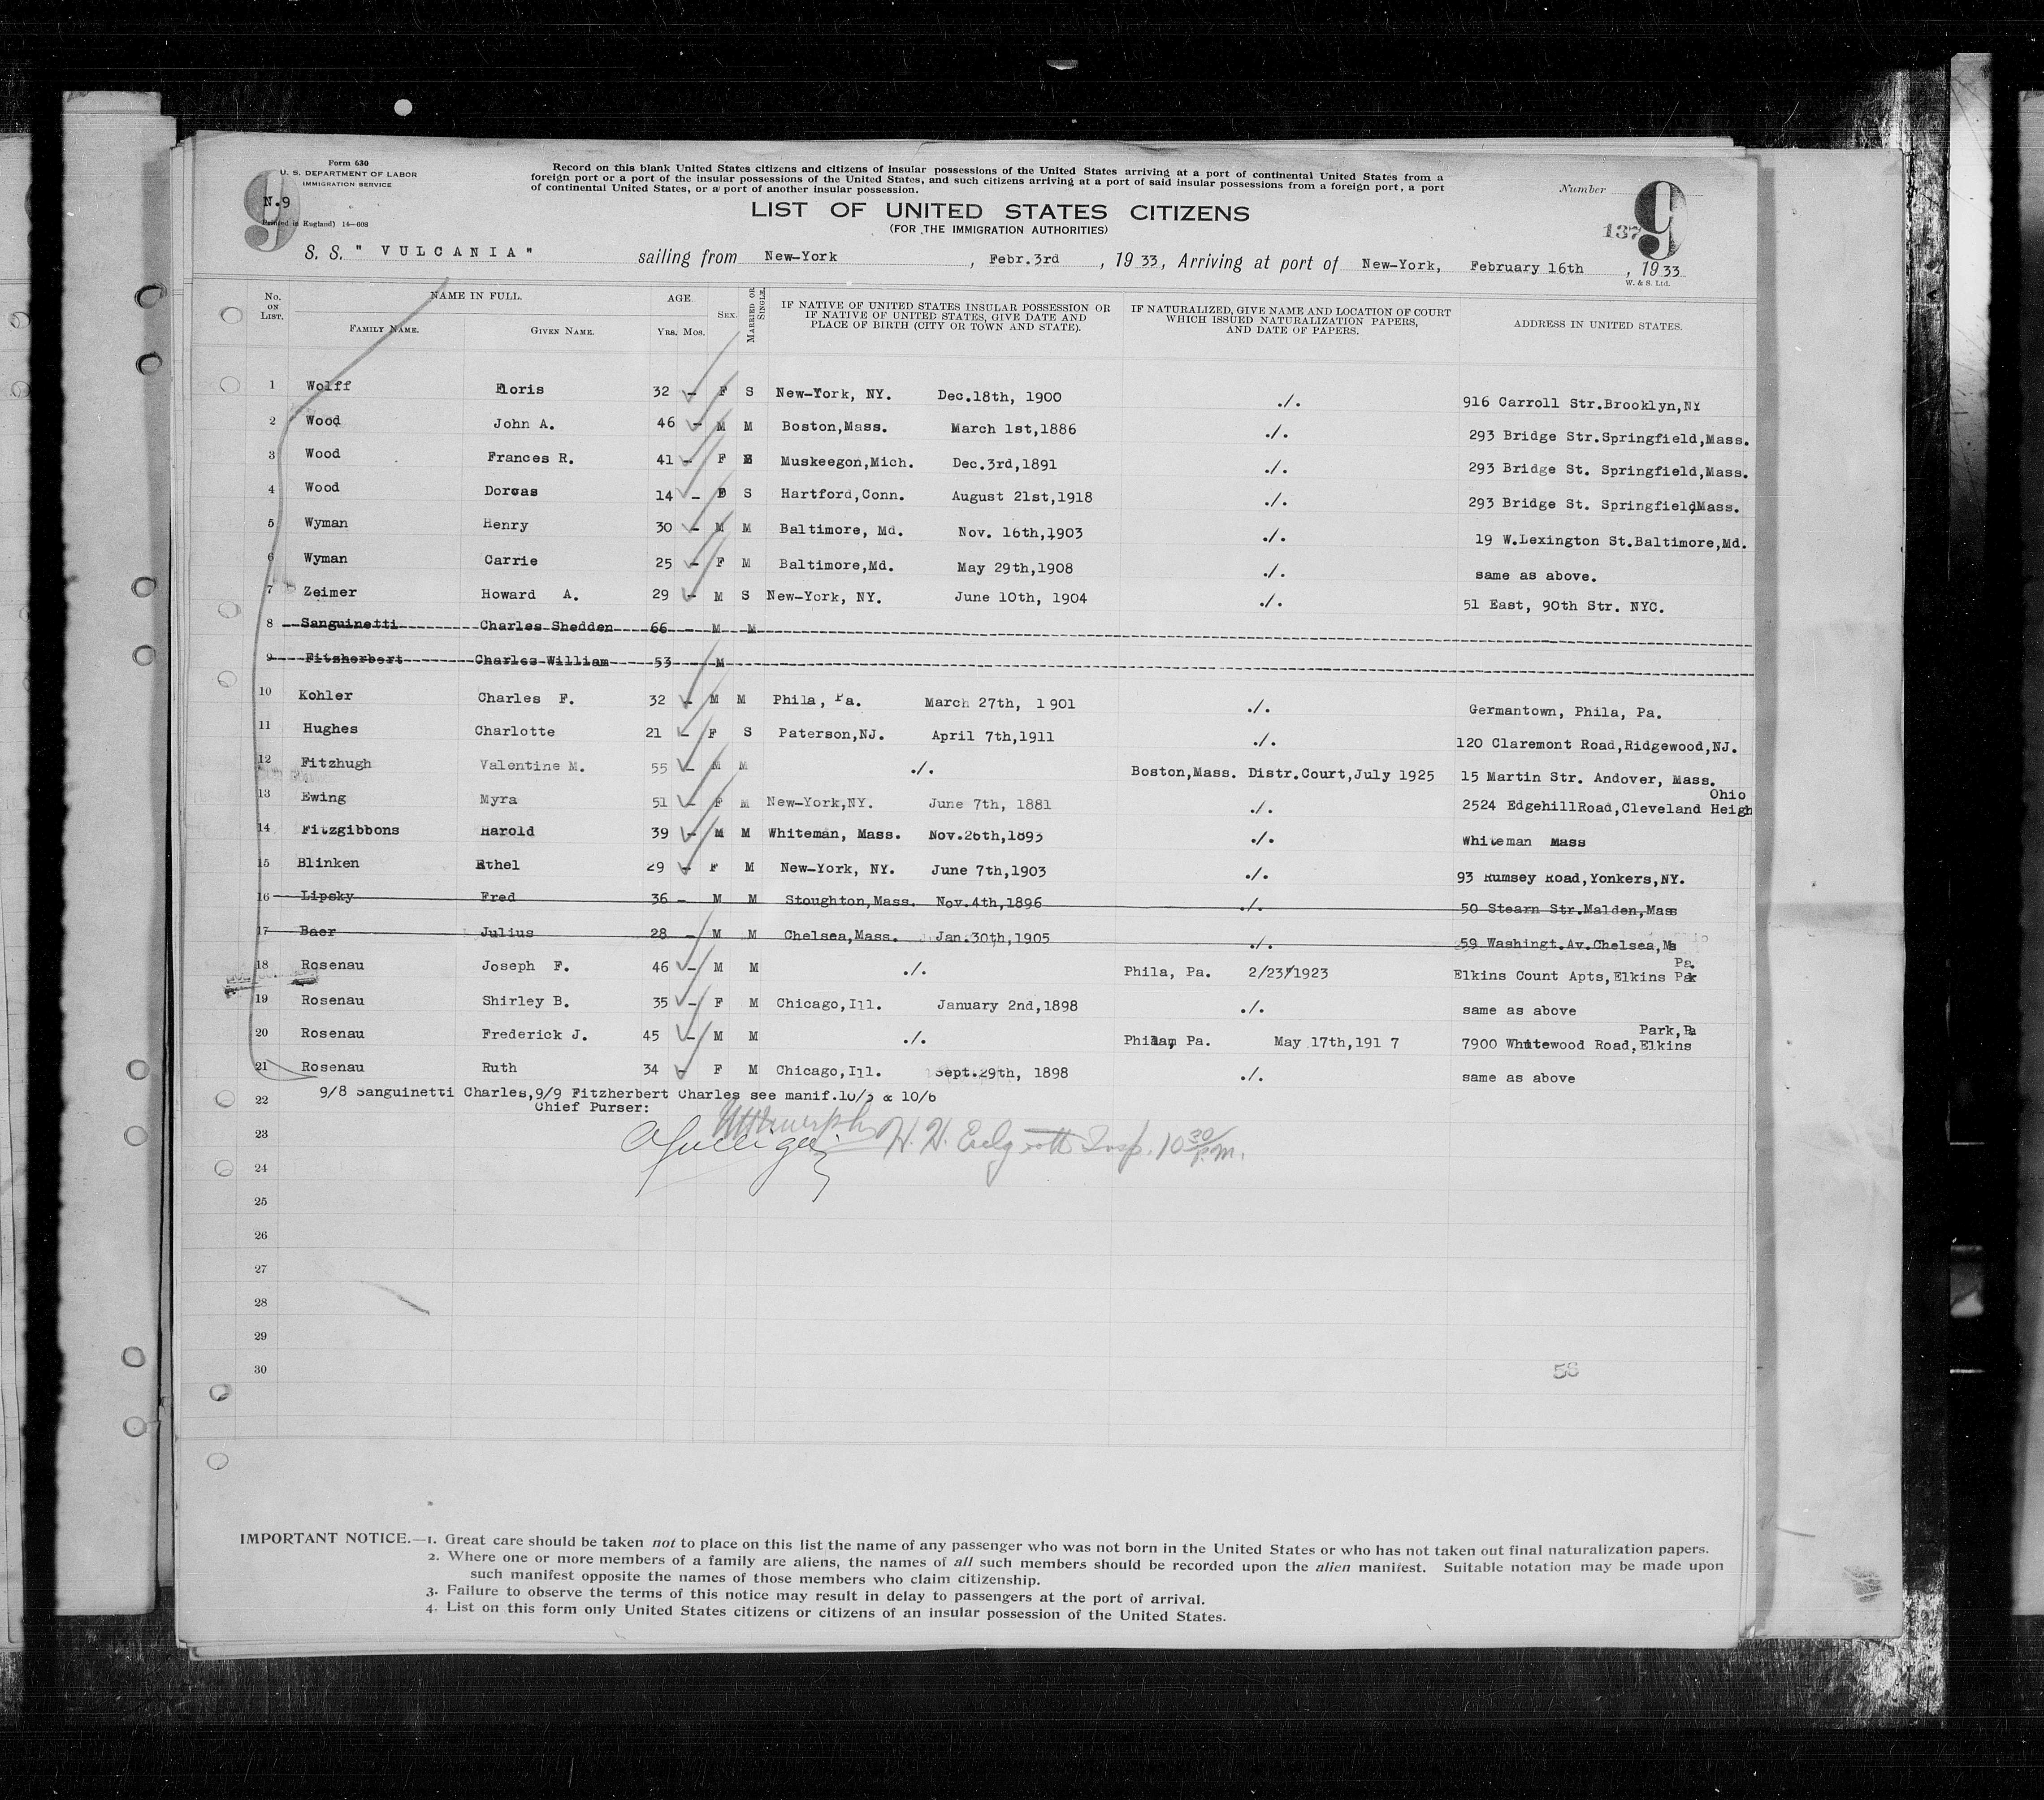 Form 630
U. S. DEPARTMENT OF LABOR
IMMIGRATION SERVICE
9
N.9
Printed in England) 14—608
Record on this blank United States citizens and citizens of insular possessions of the United States arriving at a port of continental United States from a
foreign port or a port of the insular possessions of the United States, and such citizens arriving at a port of said insular possessions from a foreign port, a port
of continental United States, or a port of another insular possession.
Number
9
137
LIST OF UNITED STATES CITIZENS
(FOR THE IMMIGRATION AUTHORITIES)
S. S. " VULCANIA " sailing from New-York , Febr.3rd , 1933, Arriving at port of New-York, February 16th , 1933
W. & S. Ltd.
No. ON LIST. NAME IN FULL. FAMILY NAME. GIVEN NAME. AGE Yrs. Mos. SEX. MARRIED OR SINGLE. IF NATIVE OF UNITED STATES INSULAR POSSESSION OR IF NATIVE OF UNITED STATES, GIVE DATE AND PLACE OF BIRTH (CITY OR TOWN AND STATE). IF NATURALIZED, GIVE NAME AND LOCATION OF COURT WHICH ISSUED NATURALIZATION PAPERS, AND DATE OF PAPERS. ADDRESS IN UNITED STATES.
1 Wolff 32 - F S New-York, NY. Dec.18th, 1900 ./. 916 Carroll Str.Brooklyn,NY
2 Wood John A. 46 - M M Boston,Mass. March 1st,1886 ./. 293 Bridge Str.Springfield,Mass.
3 Wood Frances R. 41 - F Muskeegon,Mich. Dec.3rd,1891 ./. 293 Bridge St. Springfield,Mass.
4 Wood Dorcas 14 - S Hartford,Conn. August 21st,1918 ./. 293 Bridge St. Springfield,Mass.
5 Wyman Henry 30 - M M Baltimore, Md. Nov. 16th,1903 ./. 19 W.Lexington St.Baltimore,Md.
6 Wyman Carrie 25 - F M Baltimore,Md. May 29th,1908 ./. same as above.
7 Zeimer Howard A. 29 - M S New-York, NY. June 10th, 1904 ./. 51 East, 90th Str. NYC.
8 Sanguinetti Charles Shedden 66 - M M
9 Fitzherbert Charles William 53 - M
10 Kohler Charles F. 32 - M M Phila, Pa. March 27th, 1901 ./. Germantown, Phila, Pa.
11 Hughes Charlotte 21 - F S Paterson,NJ. April 7th,1911 ./. 120 Claremont Road,Ridgewood,NJ.
12 Fitzhugh Valentine M. 55 - M M ./. Boston,Mass. Distr.Court,July 1925 15 Martin Str. Andover, Mass.
Ohio
13 Ewing Myra 51 - F M New-York,NY. June 7th, 1881 ./. 2524 EdgehillRoad,Cleveland Heigh
14 Fitzgibbons Harold 39 - M M Whiteman, Mass. Nov.26th,1893 ./. Whiteman Mass
15 Blinken Ethel 29 - F M New-York, NY. June 7th,1903 ./. 93 Rumsey Road,Yonkers,NY.
16 Lipsky Fred 36 - M M Stoughton,Mass. Nov.4th,1896 ./. 50 Stearn Str.Malden,Mass
17 Baer Julius 28 - M M Chelsea,Mass. Jan.30th,1905 ./. 59 Washingt.Av.Chelsea,Ms
Pa.
18 Rosenau Joseph F. 46 - M M ./. Phila, Pa. 2/23/1923 Elkins Count Apts,Elkins Park
19 Rosenau Shirley B. 35 - F M Chicago,Ill. January 2nd,1898 ./. same as above
Park,Pa
20 Rosenau Frederick J. 45 - M M ./. Pa. May 17th,191 7 7900 Whitewood Road,Elkins
21 Rosenau Ruth 34 - F M Chicago,Ill. Sept.29th, 1898 ./. same as above
22 9/8 Sanguinetti Charles,9/9 Fitzherbert Charles see manif.10/5 & 10/6
Chief Purser:
23
Insp. 10 30/P.M.
24
25
26
27
28
29
30
58
IMPORTANT NOTICE.—1. Great care should be taken not to place on this list the name of any passenger who was not born in the United States or who has not taken out final naturalization papers.
2. Where one or more members of a family are aliens, the names of all such members should be recorded upon the alien manifest. Suitable notation may be made upon
such manifest opposite the names of those members who claim citizenship.
3. Failure to observe the terms of this notice may result in delay to passengers at the port of arrival.
4. List on this form only United States citizens or citizens of an insular possession of the United States.